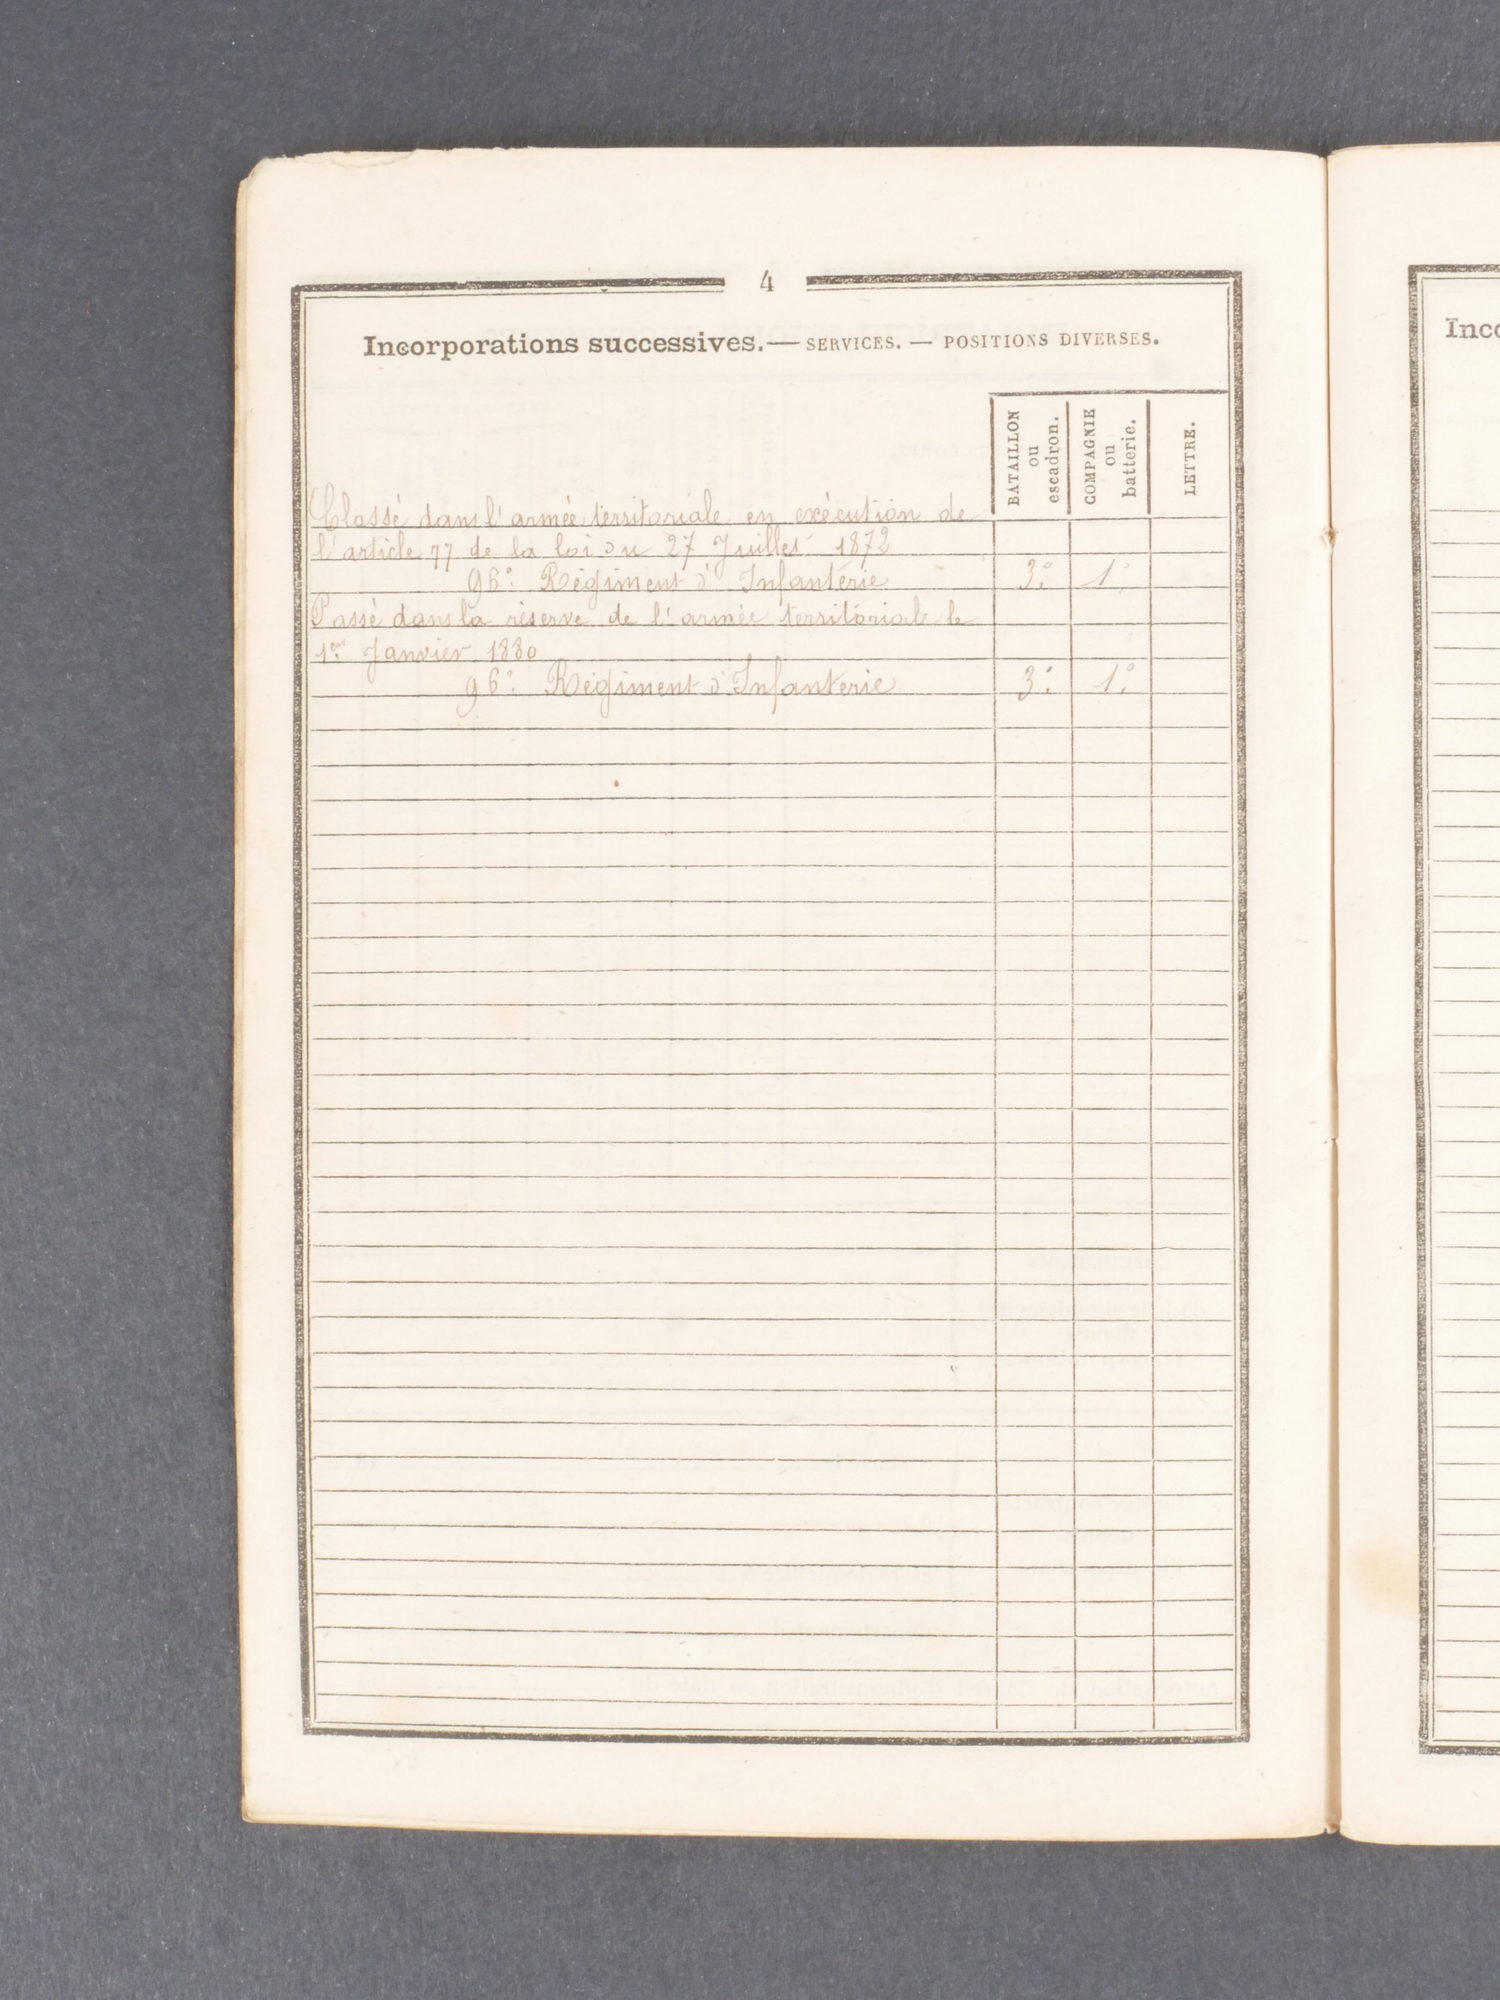 4
Incorporations successives. — SERVICES. — POSITIONS DIVERSES.
BATAILLON
ou
escadron.
COMPAGNIE
ou
batterie.
LETTRE.
Classé dans l'armée territoriale en exécution de
l'article 77 de la loi du 27 Juillet 1872
96e Régiment d'Infanterie 3e 1e
Passé dans la réserve de l'armée territoriale le
1er Janvier 1880
96e Régiment d'Infanterie 3e 1e
Inco